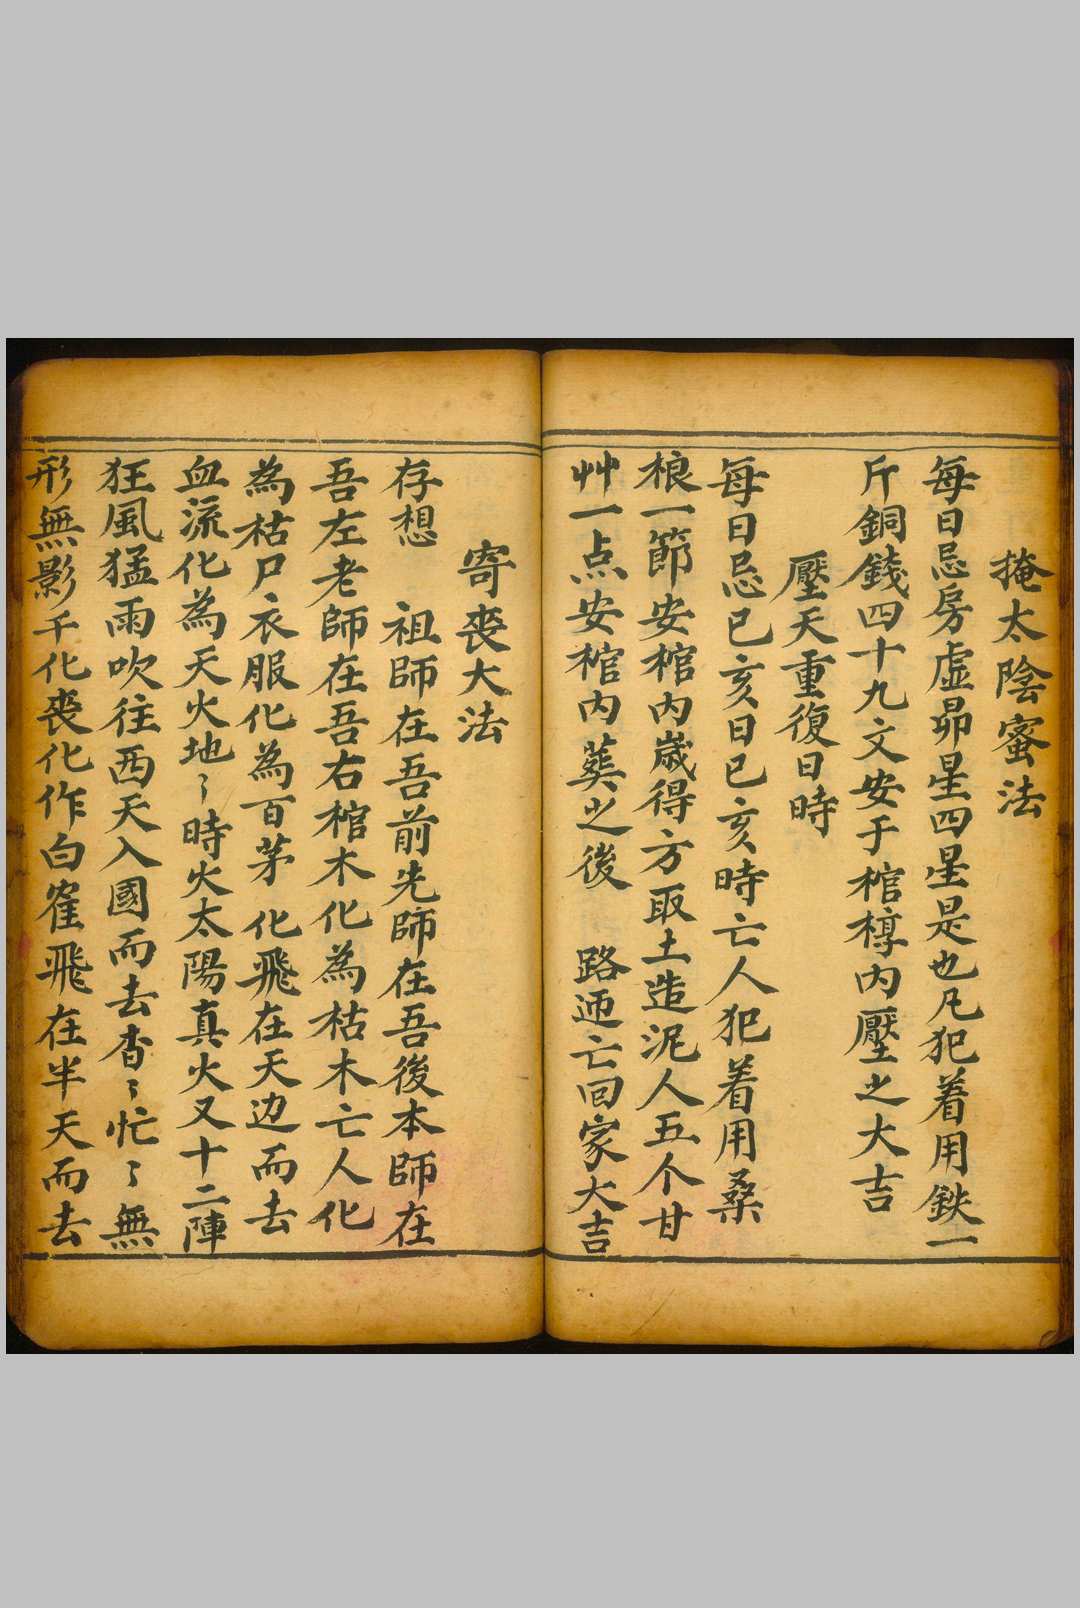 掩太陰蜜法
每日忌房虛昴星四星是也凡犯着用鉄一
斤銅錢四十九文安于棺椁内壓之大吉
壓天重復日時
每日忌巳亥日巳亥時亡人犯着用桑
根一節安棺内歲得方取土造泥人五个甘
艸一点安棺内葬之後　路逥亡回家大吉
寄喪大法
存想　祖師在吾前先師在吾後本師在
吾左老師在吾右棺木化為枯木亡人化
為枯尸衣服化為百茅　化飛在天边而去
血流化為天火地〻時火太陽真火又十二陣
狂風猛雨吹往西天入國而去杳〻忙〻無
形無影千化喪化作白隺飛在半天而去